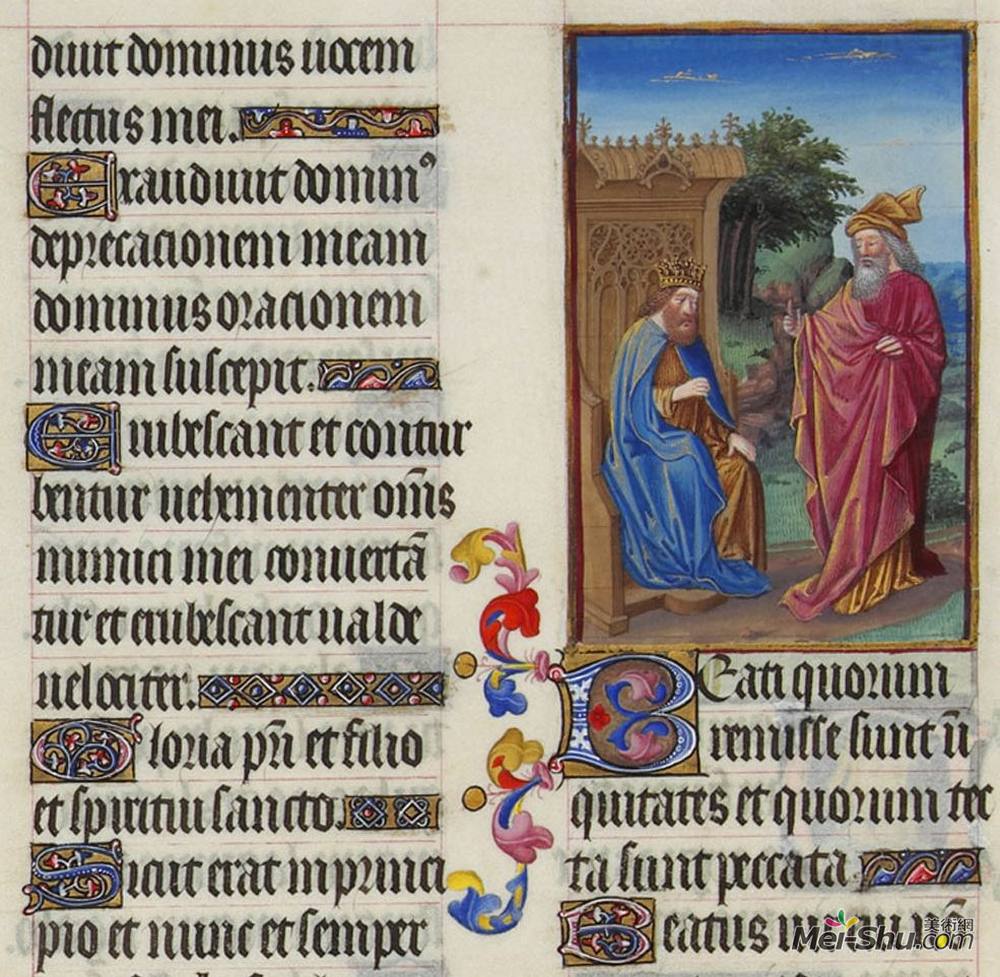 diuit dominus uocem
fletus mei.
Exaudiuit domin⁹
deprecacionem meam
dominus oracionem
meam suscepit.
Erubescant et contur
bentur uehementer om̄s
inimici mei conuertā
tur et erubescant ualde
uelociter.
Gloria pr̄i et filio
et spiritui sancto.
Sicut erat in princi
pio et nunc et semper
Beati quorum
remisse sunt ī
quitates et quorum tec
ta sunt peccata
Beatus
美術網
Mei-Shu.com